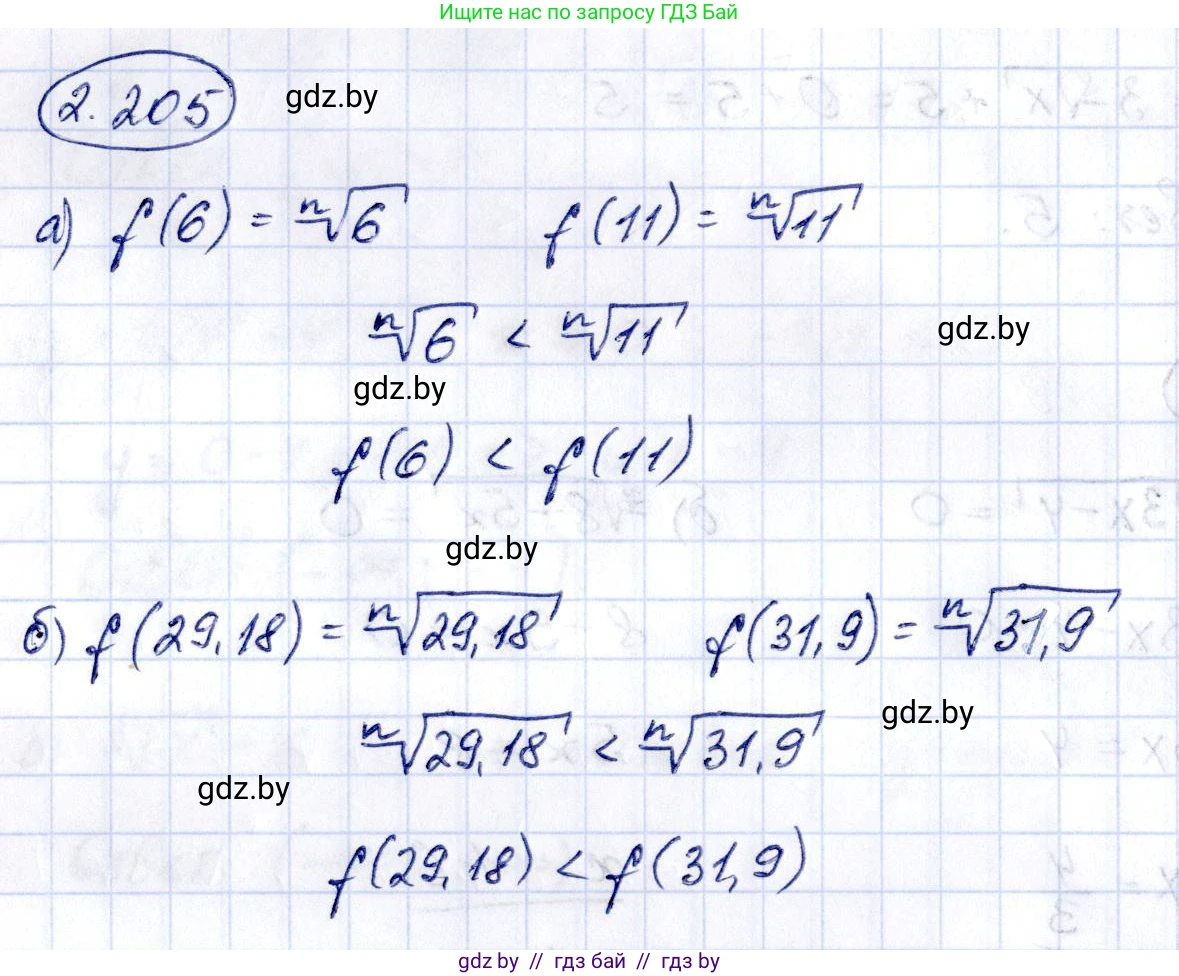 Ищите нас по запросу ГДЗ Бай
2.205 gdz.by
а) f(6) = ⁿ√6 f(11) = ⁿ√11
ⁿ√6 < ⁿ√11 gdz.by
gdz.by
f(6) < f(11)
gdz.by
б) f(29,18) = ⁿ√29,18 f(31,9) = ⁿ√31,9
gdz.by
ⁿ√29,18 < ⁿ√31,9
gdz.by
f(29,18) < f(31,9)
gdz by // гдз бай // gdz by